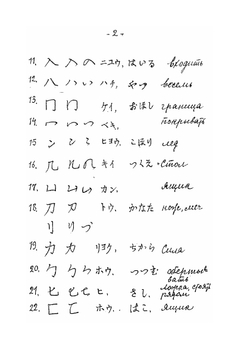 - 2 -
11. 入 入 の ニユウ, はいる входить
12. 八 ハ い ハチ, やつ восемь
13. 冂 冂 ケイ, おほし граница
14. 冖 つ つ べキ, покрывать
15 ン ン ヒヨウ, こほり лед
16. 几 几 キイ つくえ Стол
17. 凵 凵 い カン. Ящик
18. 刀 刀 トウ, かたな нож, меч
刂 リ
19. 力 力 リヨク, ちから Сила
20. 勹 勹 勹 ホウ, つつむ обертывать
21. 匕 匕 ヒ, さし, ложка,
рядом
22. 匚 匚 ホウ, はこ, Ящик